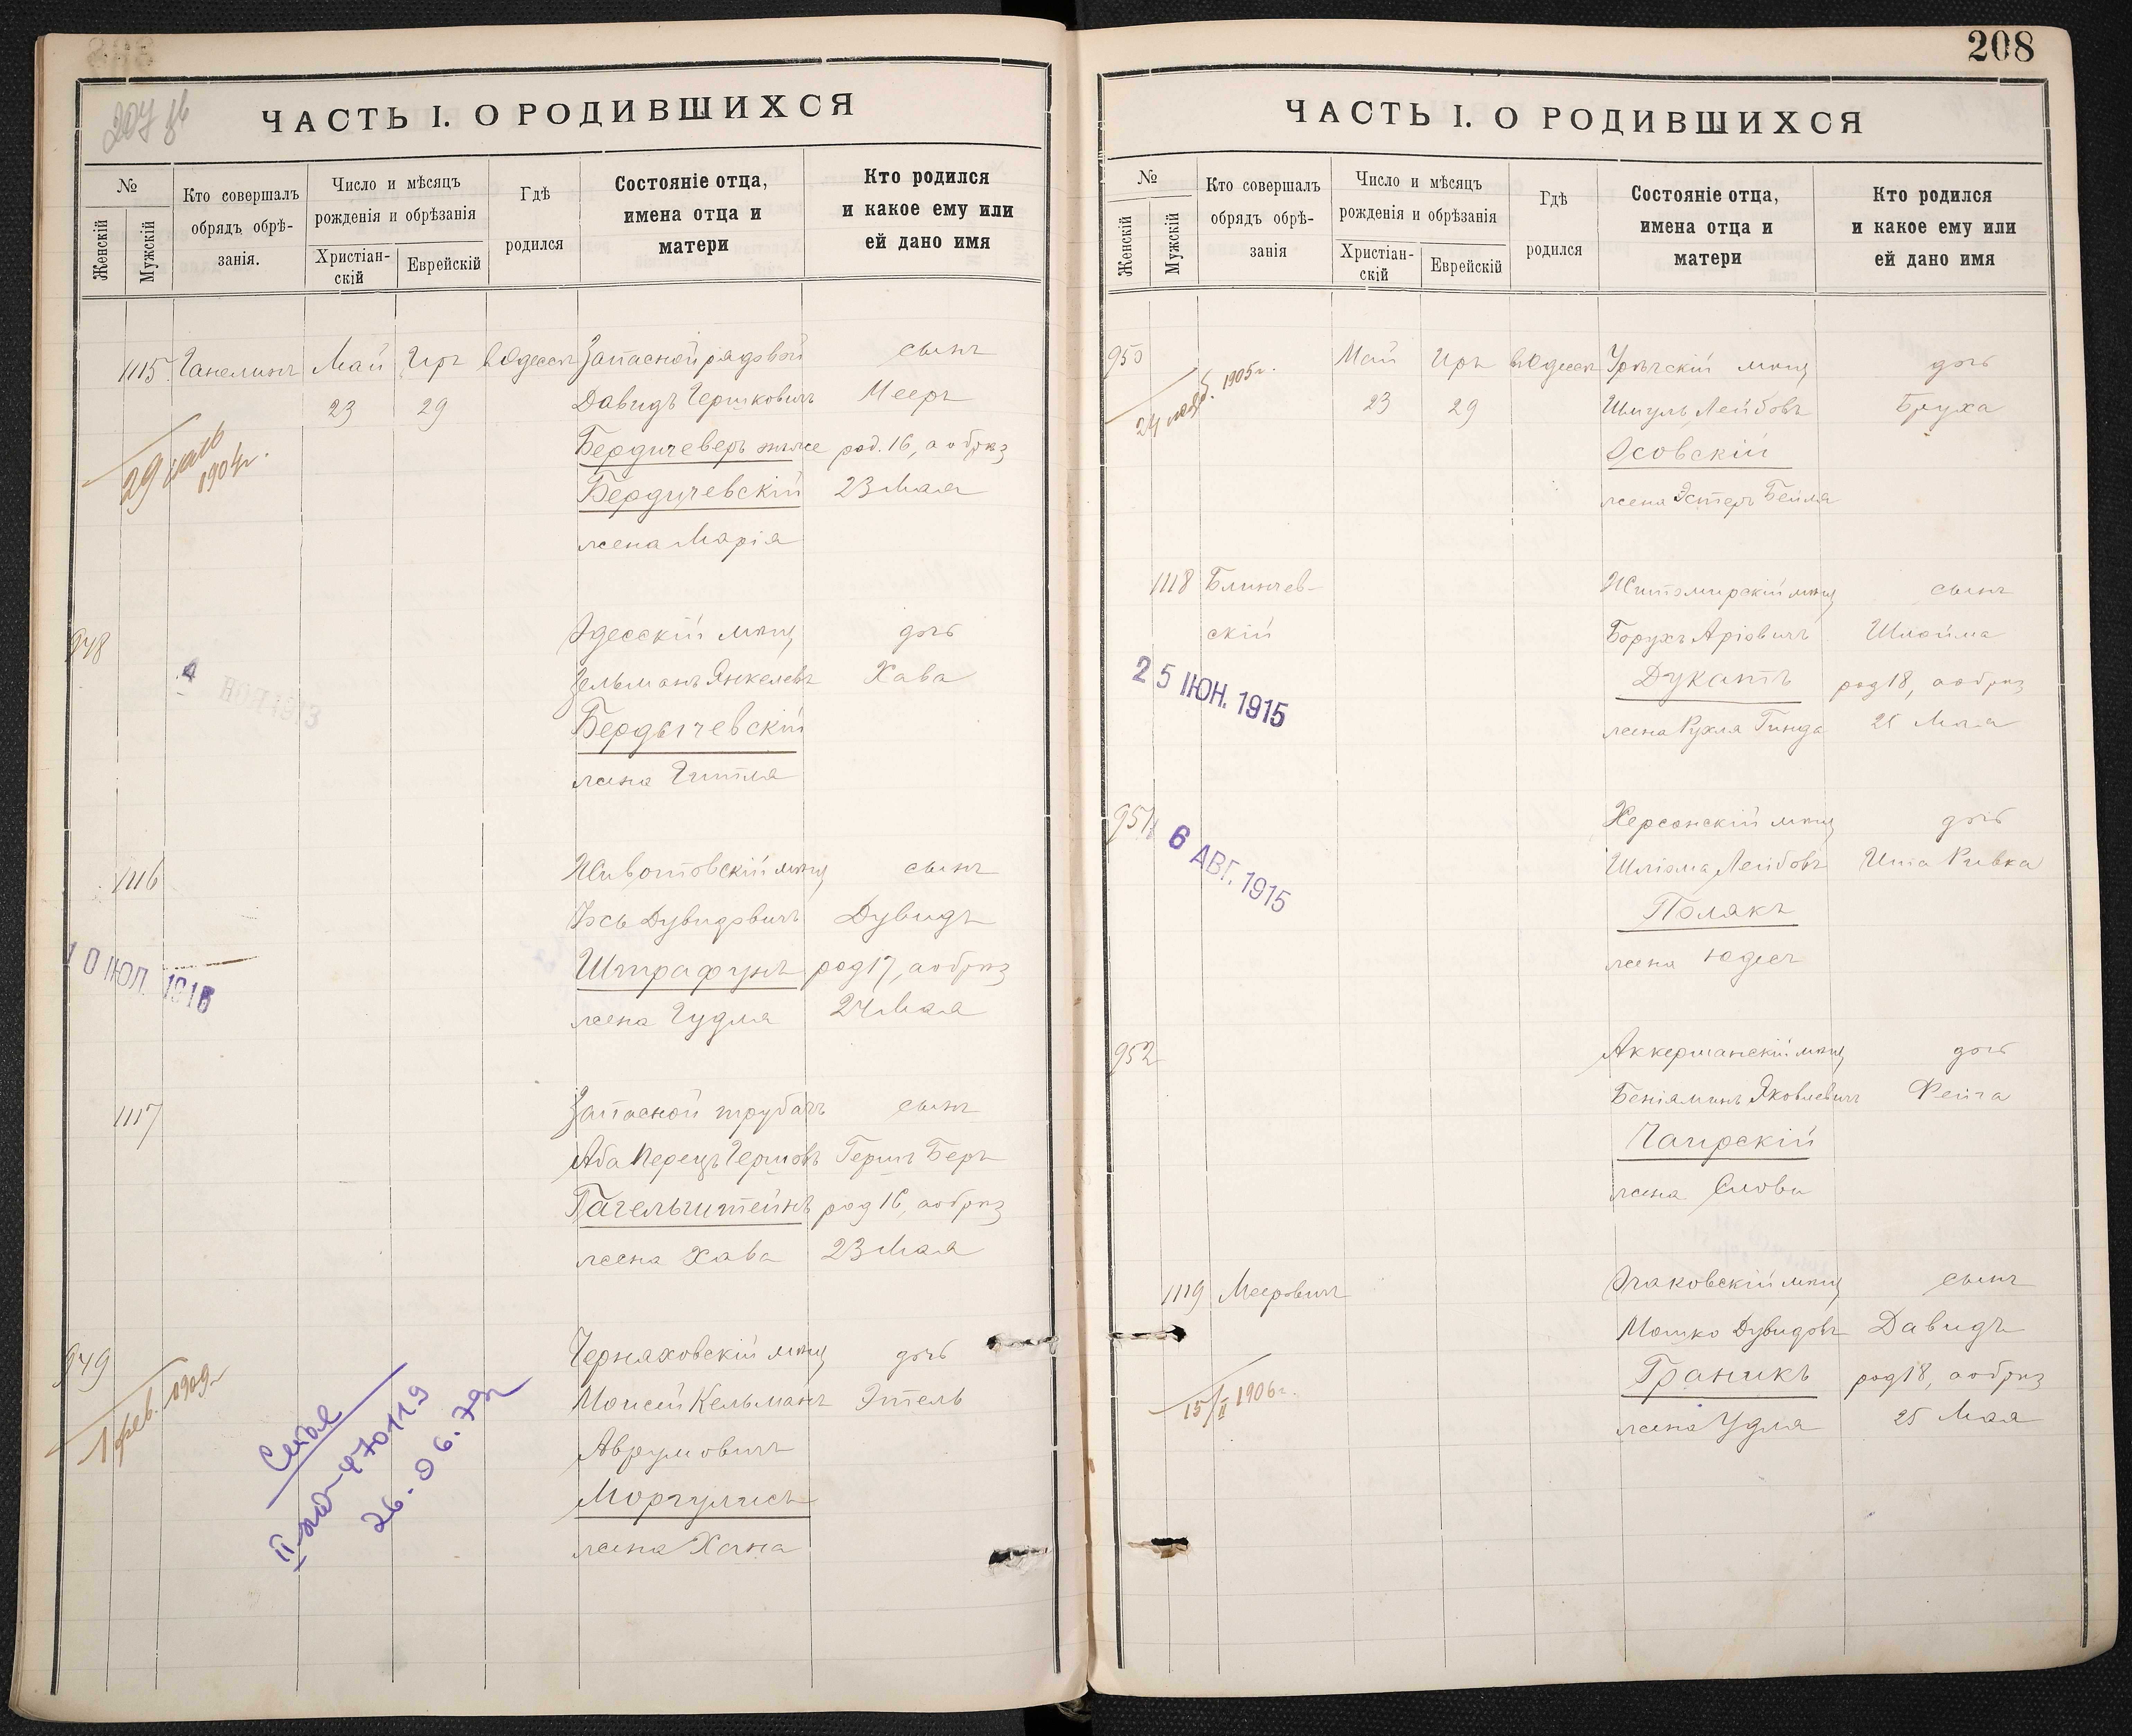 ЧАСТЬ I. О РОДИВШИХСЯ
№
Женскій
Мужскій
Кто совершалъ
обрядъ обрѣ-
занія.
Число и мѣсяцъ
рожденія и обрѣзанія
Христіан-
скій
Еврейскій
Гдѣ
родился
Состояніе отца,
имена отца и
матери
Кто родился
и какое ему или
ей дано имя
1115 Май Иръ Запасной рядовой сынъ
23 29 Давидъ Гершковичъ Мееръ
Бердичеверъ онъ же род. 16, а обрѣз
Бердичевскій 23 Мая
жена Марія
29 1904 г.
948 Одесскій мѣщ дочь
Зельманъ Янкелевъ Хава
Бердычевскій
жена Гитля
4 НОЯ 1913
1116 Животовскій мѣщ сынъ
Іось Дувидовичъ Дувидъ
Штрафунъ род 17, а обрѣз
жена Гудля 24 Мая
10 ІЮЛ.
1117 Запасной трубачъ сынъ
Аба Перецъ Гершовъ Гершъ Беръ
Гагельштейнъ род 16, а обрѣз
жена Хава 23 Мая
949 Черняховскій мѣщ дочь
Моисей Кельманъ Этель
Аврумовичъ
Моргулисъ
жена Хана
1 фев. 1909 г
470119
26.06.79г
208
ЧАСТЬ I. О РОДИВШИХСЯ
№
Женскій
Мужскій
Кто совершалъ
обрядъ обрѣ-
занія
Число и мѣсяцъ
рожденія и обрѣзанія
Христіан-
скій
Еврейскій
Гдѣ
родился
Состояніе отца,
имена отца и
матери
Кто родился
и какое ему или
ей дано имя
950 Май Иръ мѣщ дочь
23 29 Шмуль Лейбовъ Бруха
Осовскій
жена Эстеръ Бейля
24 1905 г.
1118 Блинчев- Житомирскій мѣщ сынъ
скій Борухъ Аріовичъ Шлойма
Дукатъ род 18, а обрѣз
жена Рухля Гинда 25 Мая
25 ІЮН. 1915
951 Херсонскій мѣщ дочь
Шліома Лейбовъ Ита Ривка
Полякъ
жена Юдесъ
6 АВГ. 1915
952 Аккерманскій мѣщ дочь
Беніаминъ Яковлевичъ Фейга
жена
1119 Мееровичъ Очаковскій мѣщ сынъ
Мошко Дувидовъ Давидъ
Граникъ род 18, а обрѣз
жена Удля 25 Мая
15/II 1906 г.